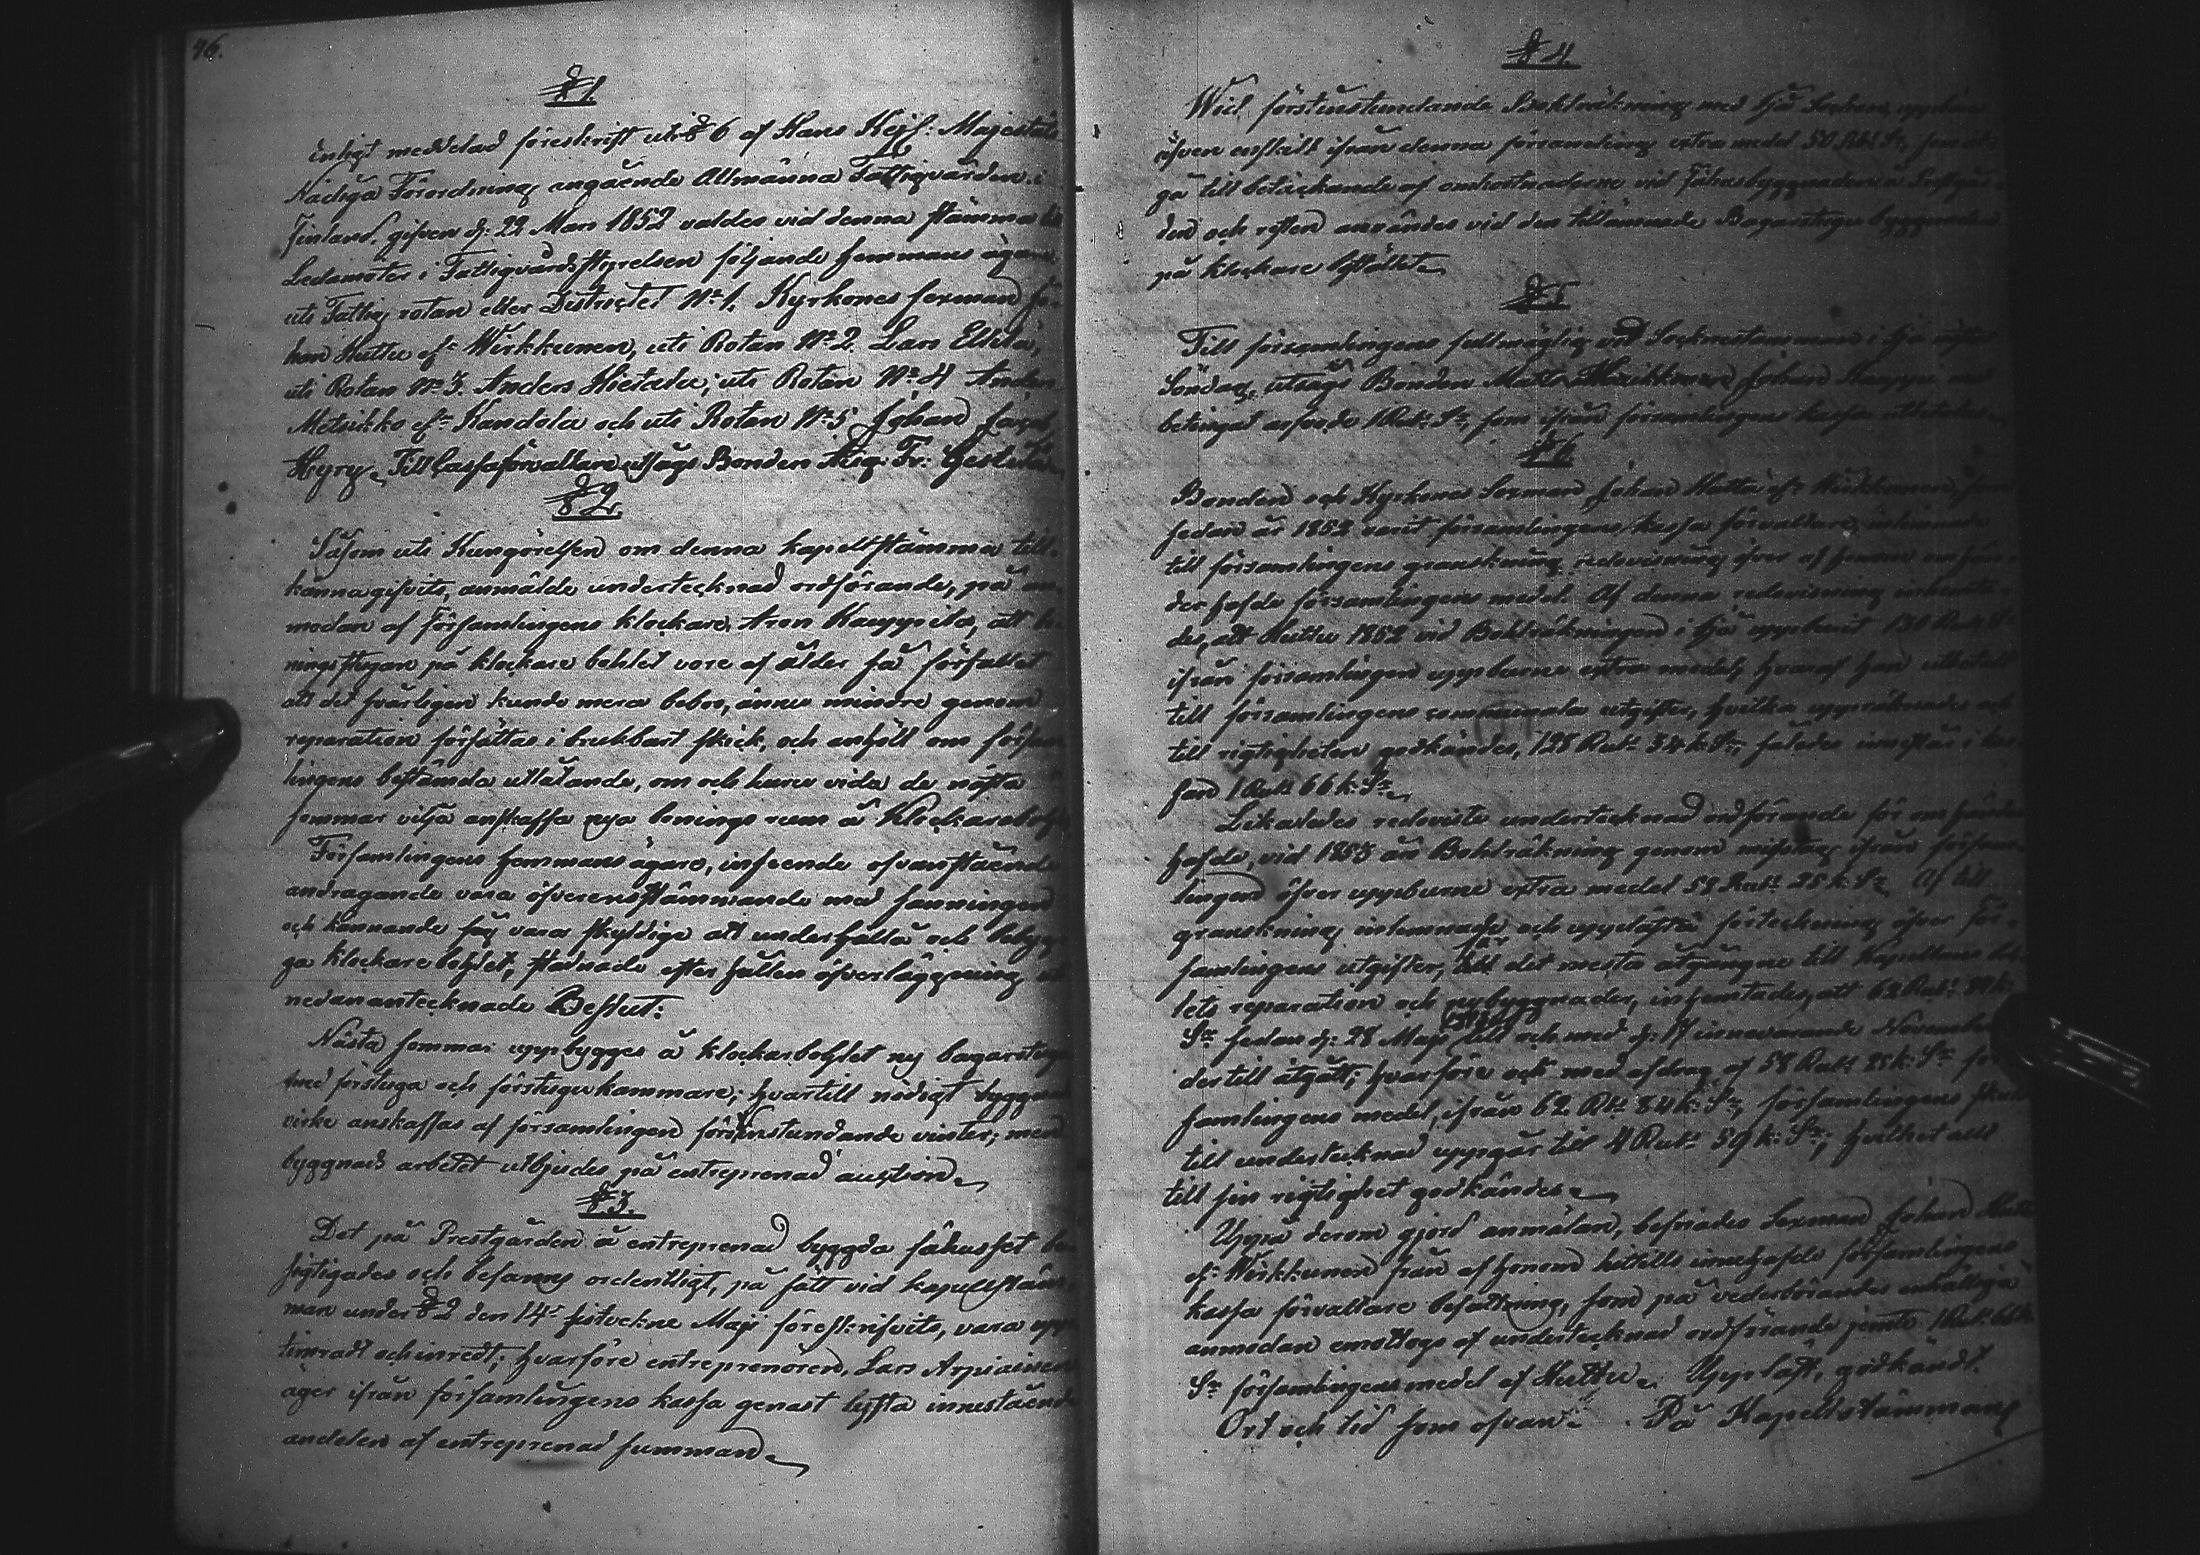 46.
§ 1.
Enligt meddelad föreskrift uti § 6 af Hans Kejs: Majestäts
Nådiga Förordning angående Allmänna Fattigvården i
Finland, gifven d: 22 Mars 1852 valdes vid denna stämma till
Ledamöter i Fattigvårds styrelsen följande hemmans ägare
uti Fattig rotan eller Districtet No 1. Kyrkones sexman Jo-
han Huttu af Wirkkunen, uti Rotan No 2. Lars Ellilä,
uti Rotan No 3. Anders Hietalu, uti Rotan No 4 Anders
Metsikko af Kandola och uti Rotan No 5 Johan
Hyry. Till Cassaförvaltare utsågs Bonden
§ 2
Såsom uti Kungörelsen om denna kapellstämma till-
känna gifvits, anmälde undertecknad ordförande, på an-
modan af Församlingens klockare, Aron Kauppila, att bo-
nings stugan på klockare bohlet vore af ålder så förfallet
att det svårligen kunde mera bebos, ännu mindre genom
reparation försättas i brukbart skick, och anhöll om försam-
lingens bestämda utlåtande, om och huru vida de nästa
sommar vilja anskaffa nya bonings rum å Klockarebohlet
Församlingens hemmans ägare, inseende ofvanstående
andragande vara öfverensstämmande med sanningen
och kännande sig vara skyldige att underhålla och bebyg-
ga klockare bohlet, stadnade efter hållen öfverläggning uti
nedanantecknade Beslut:
Nästa sommar uppbygges å klockarbohlet ny bagarstuga
med forstuga och förstugukammare; hvartill nödigt byggnads
virke anskaffas af församlingen förstinstundande vinter, men
byggnads arbetet utbjudes på entreprenad auction.
§ 3.
Det på Prestgården å entreprenad byggda fähuset be-
sigtigades och befanns ordentligt, på sätt vid kapellstäm-
man under § 2 den 14de sistvekne Maji föreskrifvits, vara upp-
timradt och inredt; hvarföre entreprenören, Lars Arpiainen
äger ifrån församlingens kassa genast lyfta innestående
andelen af entreprenad summan.
§ 4.
Wid förstinstundande Bohlräkning med
äfven enskilt ifrån denna församling extra medel 50 Rub. Sr,
gå till betäckande af omkostnaderna vid Fähusbyggnaden å Prestgår-
den och resten användes vid den tillämnade Bagarstugu byggnaden
på klockare bostället.
§ 5
Till församlingens fullmägtig vid Socknestämman i Ijo
Söndag, utsågs Bonden Johan Kauppi
betingat arfvode 1 Rub. Sr, som ifrån församlingens kassa utbetalas.
§ 6
Bonden och Kyrkones Sexman Johan Huttu af Wirkkunen, som
sedan år 1852 varit församlingens kassa förvaltare, inlemnade
till församlingens granskning redovisning öfver af honom om hän-
der hafde församlingens medel. Af denna redovisning inhemta-
des, att Huttu 1852 vid Bohlräkningen i Ijo uppburit 130 Rub. Sr
ifrån församlingen uppburne extra medel, hvaraf han utbetalt
till församlingens communala utgifter, hvilka uppräknades och
till rigtigheten godkändes, 128 Rub. 34 k. Sr, således innestår i be-
hand 1 Rub. 66 k. Sr.
Likaledes redoviste undertecknad ordförande för om händer
hafde, vid 1853 års Bohlräkning genom misstag ifrån försam-
lingen öfver uppburne extra medel 58 Rub. 25 k. Sr. Af till
granskning inlemnade och upplästa förteckning öfver för-
samlingens utgifter, för det mesta åtgångne till Kapellans bo-
lets reparation och nybyggnader, inhemtades, att 62 Rub. 84 k.
Sr sedan d: 28 Maji till och med d: 17 innevarande November
dertill åtgått; hvarföre och med afdrag af 58 Rub. 25 k. Sr för-
samlingens medel, ifrån 62 Rub. 84 k. Sr, församlingens skuld
till undertecknad uppgår till 4 Rub. 59 k. Sr; hvilket allt
till sin rigtighet godkändes.
Uppå derom gjord anmälan, befriades Sexman Johan Huttu
af Wirkkunen från af honom hittills innehafde församlingens
kassa förvaltare befattning, som på vederbörandes enhälliga
anmodan emottogs af undertecknad ordförande jemte 1 Rub. 66 k.
Sr församlingens medel af Huttu. Uppläst, godkändt.
Ort och tid som ofvan. På Kapellstämmans